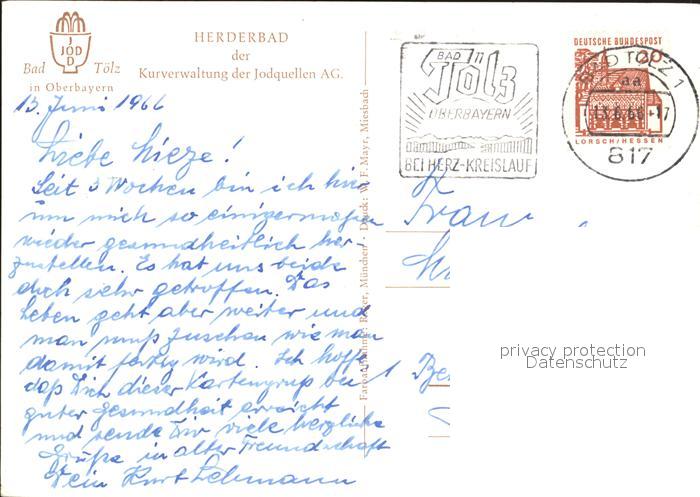 JOD
Bad Tölz
in Oberbayern
HERDERBAD
der
Kurverwaltung der Jodquellen AG.
13. Juni 1966
Liebe Mieze!
Seit 3 Wochen bin ich hier
um mich so einigermaßen
wieder gesundheitlich her-
zustellen. Es hat uns beide
doch sehr getroffen. Das
Leben geht aber weiter und
man muß zuschau wie man
damit fertig wird. Ich hoffe
daß Dich dieser Kartengruß bei
guter Gesundheit erreicht
und sende Dir viele herzliche
Grüße in alter Freundschaft
Dein Kurt Lehmann
Druck: W. F. Mayr, Miesbach
München
BAD
Tölz
OBERBAYERN
BEI HERZ-KREISLAUF
DEUTSCHE BUNDESPOST
20
LORSCH/HESSEN
BAD TÖLZ 1
aa
13.6.66-17
817
Frau
1 Ber
privacy protection
Datenschutz